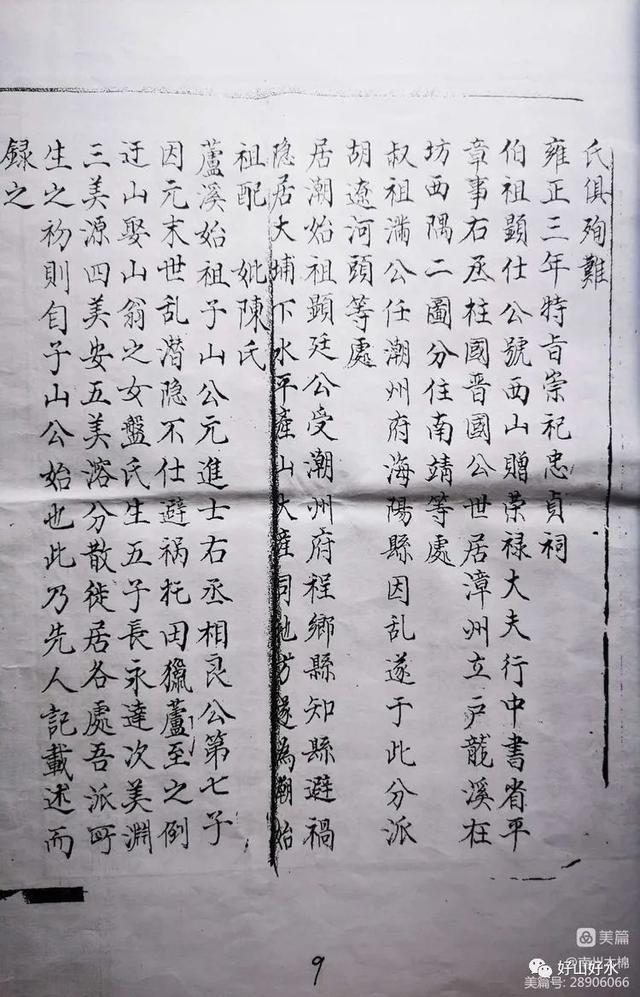 氏俱殉難
雍正三年特旨崇祀忠貞祠
伯祖顕仕公號西山贈荣禄大夫行中書省平
章事右丞柱國晋國公世居漳州立戸龍溪在
坊西隅二圖分住南靖等處
叔祖滿公任潮州府海陽縣因乱遂于此分派
胡遼河頭等處
居潮始祖顕廷公受潮州府程鄉縣知縣避禍
隐居大埔下水平産山大産同地方遂為潮始
祖配　妣陳氏
蘆溪始祖子山公元進士右丞相良公第七子
因元末世乱潜隐不仕避祸托田獵蘆至之例
迂山娶山翁之女盤氏生五子長永達次美淵
三美源四美安五美溶分散徙居各處吾派所
生之初則自子山公始也此乃先人記載述而
録之
9
美篇
@南州木棉
好山好水
美篇号: 28906066